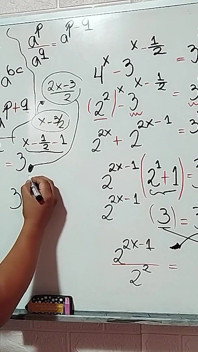 a^p/a^q = a^{p-q}
a^{bc}
(2x-3)/2
a^{p+q}
x-3/2
x-1/2-1
= 3
3
4^x - 3^{x-1/2} = 3
(2^2)^x 3^{x-1/2} = 3
2^{2x} + 2^{2x-1} = 3
2^{2x-1}(2^1+1) =
2^{2x-1} (3) = 3
2^{2x-1}/2^2 =